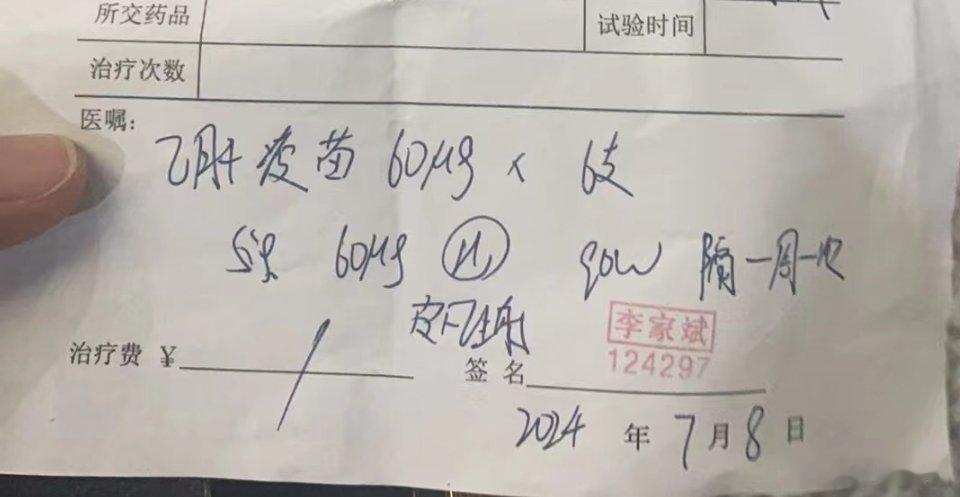 所交药品 试验时间
治疗次数
医嘱:
乙肝疫苗 60μg × 6支
Sig 60μg H qow 隔一周一次
皮下注射
李家斌
124297
治疗费 ¥ 签名
2024 年 7 月 8 日